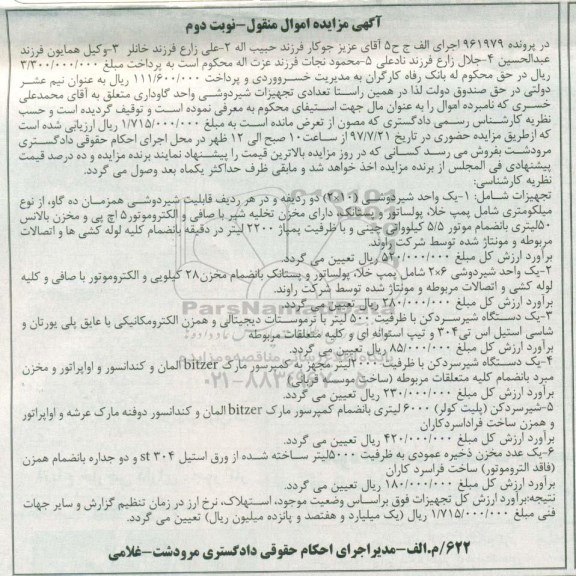 آگهی مزایده اموال منقول-نوبت دوم
در پرونده ۹۶۱۹۷۹ اجرای الف ج ح۵ آقای عزیز جوکار فرزند حبیب اله ۲-علی زارع فرزند خانلر ۳-وکیل همایون فرزند
عبدالحسین ۴-جلال زارع فرزند نادعلی ۵-محمود نجات فرزند عزت اله محکوم است به پرداخت مبلغ ۳/۳۰۰/۰۰۰/۰۰۰
ریال در حق محکوم له بانک رفاه کارگران به مدیریت خسرووردی و پرداخت ۱۱۱/۶۰۰/۰۰۰ ریال به عنوان نیم عشر
دولتی در حق صندوق دولت لذا در همین راستا تعدادی تجهیزات شیردوشی واحد گاوداری متعلق به آقای محمدعلی
خسری که نامبرده اموال را به عنوان مال جهت استیفای محکوم به معرفی نموده است و توقیف گردیده است و حسب
نظریه کارشناس رسمی دادگستری که مصون از تعرض مانده است به مبلغ ۱/۷۱۵/۰۰۰/۰۰۰ ریال ارزیابی شده است
که ازطریق مزایده حضوری در تاریخ ۹۷/۷/۲۱ از ساعت ۱۰ صبح الی ۱۲ ظهر در محل اجرای احکام حقوقی دادگستری
مرودشت بفروش می رسد کسانی که در روز مزایده بالاترین قیمت را پیشنهاد نمایند برنده مزایده و ده درصد قیمت
پیشنهادی فی المجلس از برنده مزایده اخذ خواهد شد و مابقی ظرف حداکثر یکماه بعد وصول می گردد.
نظریه کارشناسی:
تجهیزات شامل: ۱-یک واحد شیردوشی (۱۰×۲) دو ردیفه و در هر ردیف قابلیت شیردوشی همزمان ده گاو، از نوع
میلکومتری شامل پمپ خلا، پولساتور و پستانک، دارای مخزن تخلیه شیر با صافی و الکتروموتور۵ اچ پی و مخزن بالانس
۵۰لیتری بانضمام موتور ۵/۵ کیلوواتی چینی و با ظرفیت پمپاژ ۲۲۰۰ لیتر در دقیقه بانضمام کلیه لوله کشی ها و اتصالات
مربوطه و مونتاژ شده توسط شرکت راوند.
برآورد ارزش کل مبلغ ۵۲۰/۰۰۰/۰۰۰ ریال تعیین می گردد.
۲-یک واحد شیردوشی ۶×۲ شامل پمپ خلا، پولساتور و پستانک بانضمام مخزن۲۸ کیلویی و الکتروموتور با صافی و کلیه
لوله کشی و اتصالات مربوطه و مونتاژ شده توسط شرکت راوند.
برآورد ارزش کل مبلغ ۲۸۰/۰۰۰/۰۰۰ ریال تعیین می گردد.
۳-یک دستگاه شیرسردکن با ظرفیت ۵۰۰ لیتر با ترموستات دیجیتالی و همزن الکترومکانیکی با عایق پلی یورتان و
شاسی استیل اس تی۳۰۴ و تیپ استوانه ای و کلیه متعلقات مربوطه
برآورد ارزش کل مبلغ ۸۵/۰۰۰/۰۰۰ ریال تعیین می گردد.
۴-یک دستگاه شیرسردکن با ظرفیت ۲۰۰۰لیتر مجهز به کمپرسور مارک bitzer آلمان و کندانسور و اواپراتور و مخزن
مبرد بانضمام کلیه متعلقات مربوطه (ساخت موسسه قربانی)
برآورد ارزش کل مبلغ ۲۳۰/۰۰۰/۰۰۰ ریال تعیین می گردد.
۵-شیرسردکن (پلیت کولر) ۶۰۰۰ لیتری بانضمام کمپرسور مارک bitzer آلمان و کندانسور دوفنه مارک عرشه و اواپراتور
و همزن ساخت فراداسردکاران
برآورد ارزش کل مبلغ ۴۲۰/۰۰۰/۰۰۰ ریال تعیین می گردد.
۶-یک عدد مخزن ذخیره عمودی به ظرفیت ۵۰۰۰لیتر ساخته شده از ورق استیل st ۳۰۴ و دو جداره بانضمام همزن
(فاقد التروموتور) ساخت فراسرد کاران
برآورد ارزش کل مبلغ ۱۸۰/۰۰۰/۰۰۰ ریال تعیین می گردد.
نتیجه:برآورد ارزش کل تجهیزات فوق براساس وضعیت موجود، استهلاک، نرخ ارز در زمان تنظیم گزارش و سایر جهات
فنی مبلغ ۱/۷۱۵/۰۰۰/۰۰۰ ریال (یک میلیارد و هفتصد و پانزده میلیون ریال) تعیین می گردد.
۶۲۲/م.الف-مدیراجرای احکام حقوقی دادگستری مرودشت-غلامی